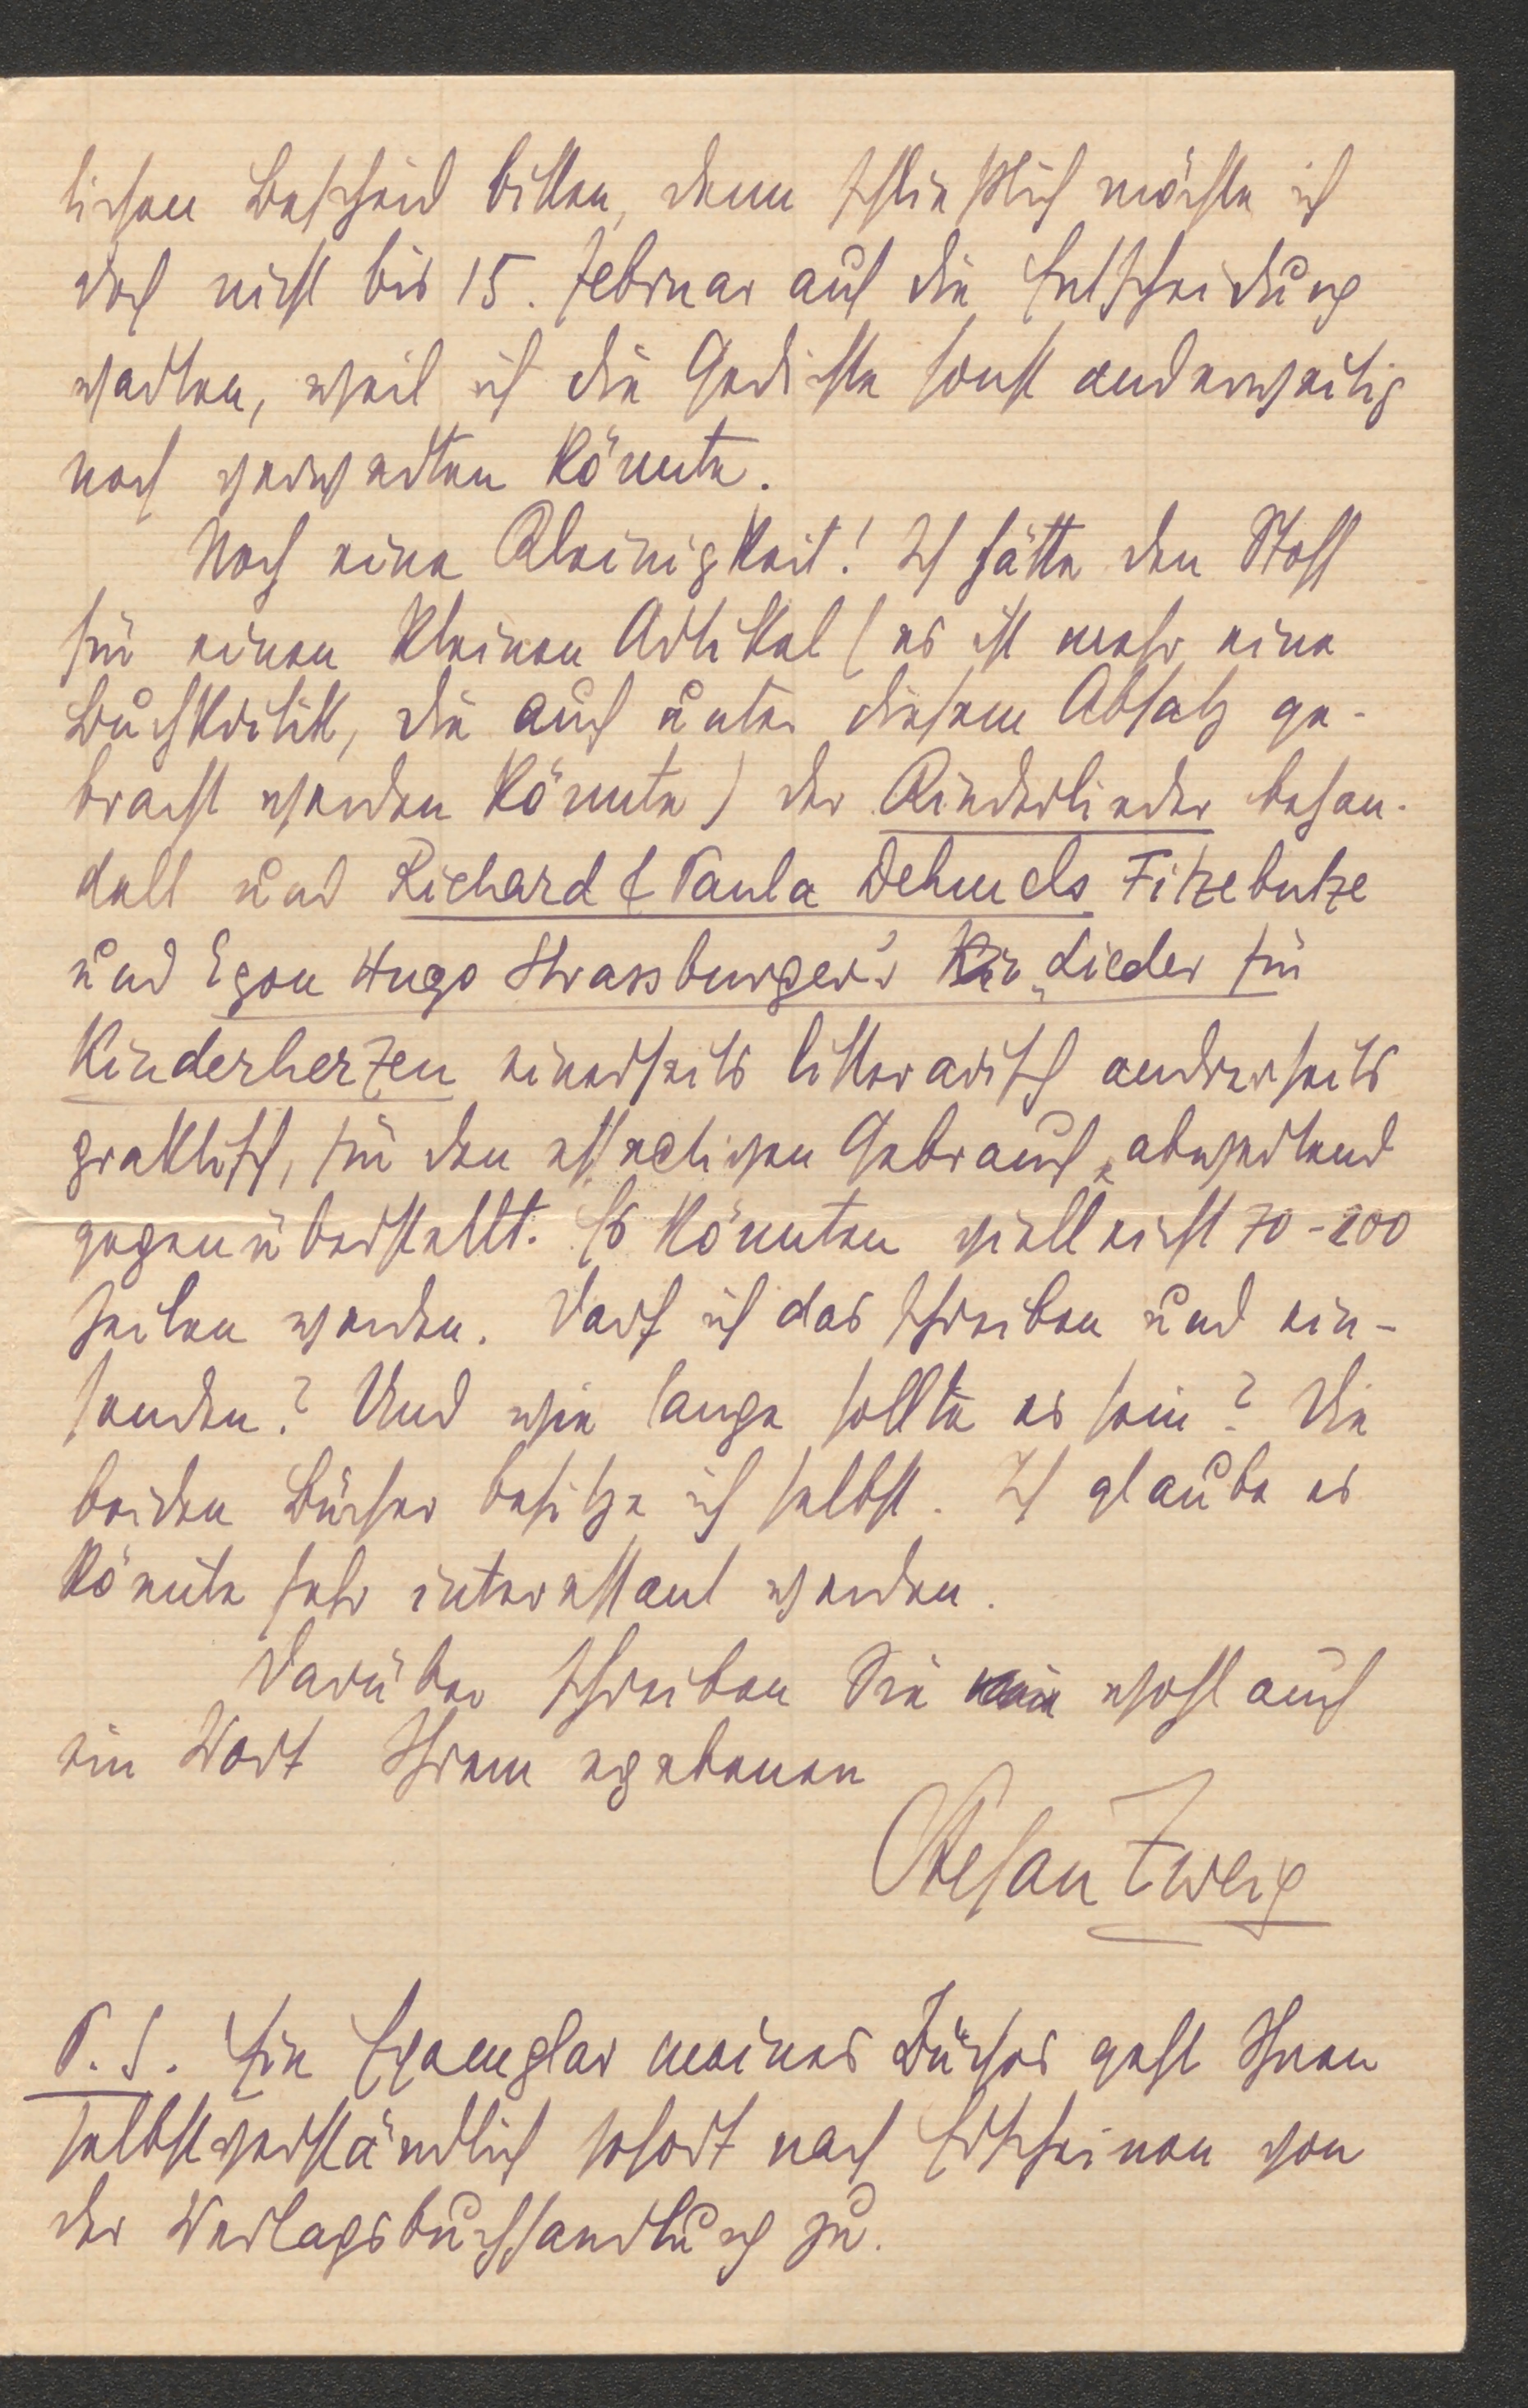 lichen Bescheid bitten, denn schließlich möchte ich
doch nicht bis 15. Februar auf die Entscheidung
warten, weil ich die Gedichte sonst anderweitig
noch verwerten könnte.
Noch eine Kleinigkeit! Ich hätte den Stoff
für einen kleinen Artikel (es ist mehr eine
Buchkritik, die auch unter diesem Absatz ge-
bracht werden könnte) der Kinderlieder behan-
delt und Richard & Paula Dehmels Fitzebutze
und Egon Hugo Strassburger's „Lieder für
Kinderherzen einerseits litterarisch andrerseits
praktisch, für den effectiven Gebrauch abwertend
gegenüberstellt. Es könnten vielleicht 70-100
Zeilen werden. Darf ich das schreiben und ein-
senden? Und wie lange sollte es sein? Die
beiden Bücher besitze ich selbst. Ich glaube es
könnte sehr interessant werden.
Darüber schreiben Sie wohl auch
ein Wort Ihrem ergebenen
Stefan Zweig
P.S. Ein Exemplar meines Buches geht Ihnen
selbstverständlich sofort nach Erscheinen von
der Verlagsbuchhandlung zu.